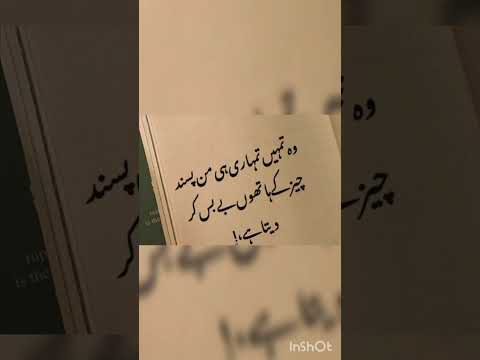 وہ تمہیں تمہاری ہی من پسند
چیز کے ہاتھوں بے بس کر
دیتا ہے،!
InShOt